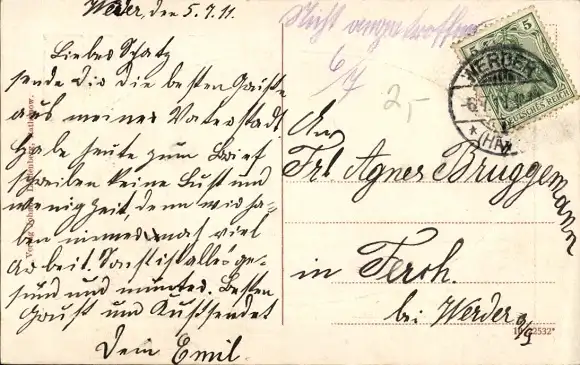 Werder, den 5.7.11.
Lieber Schatz
sende dir die besten Grüße
aus meiner Vaterstadt
habe heute zum Brief
schreiben keine Lust und
wenig Zeit, denn wir ha-
ben immer was viel
Arbeit. Sonst ist alles ge-
sund und munter. Besten
Gruß und Kuß sendet
Dein Emil
Nicht angetroffen
6/7
2,-
5
WERDER
(HAVEL)
DEUTSCHES REICH
An
Frl. Agnes Brüggemann
in Ferch.
bei Werder a/H
2532*